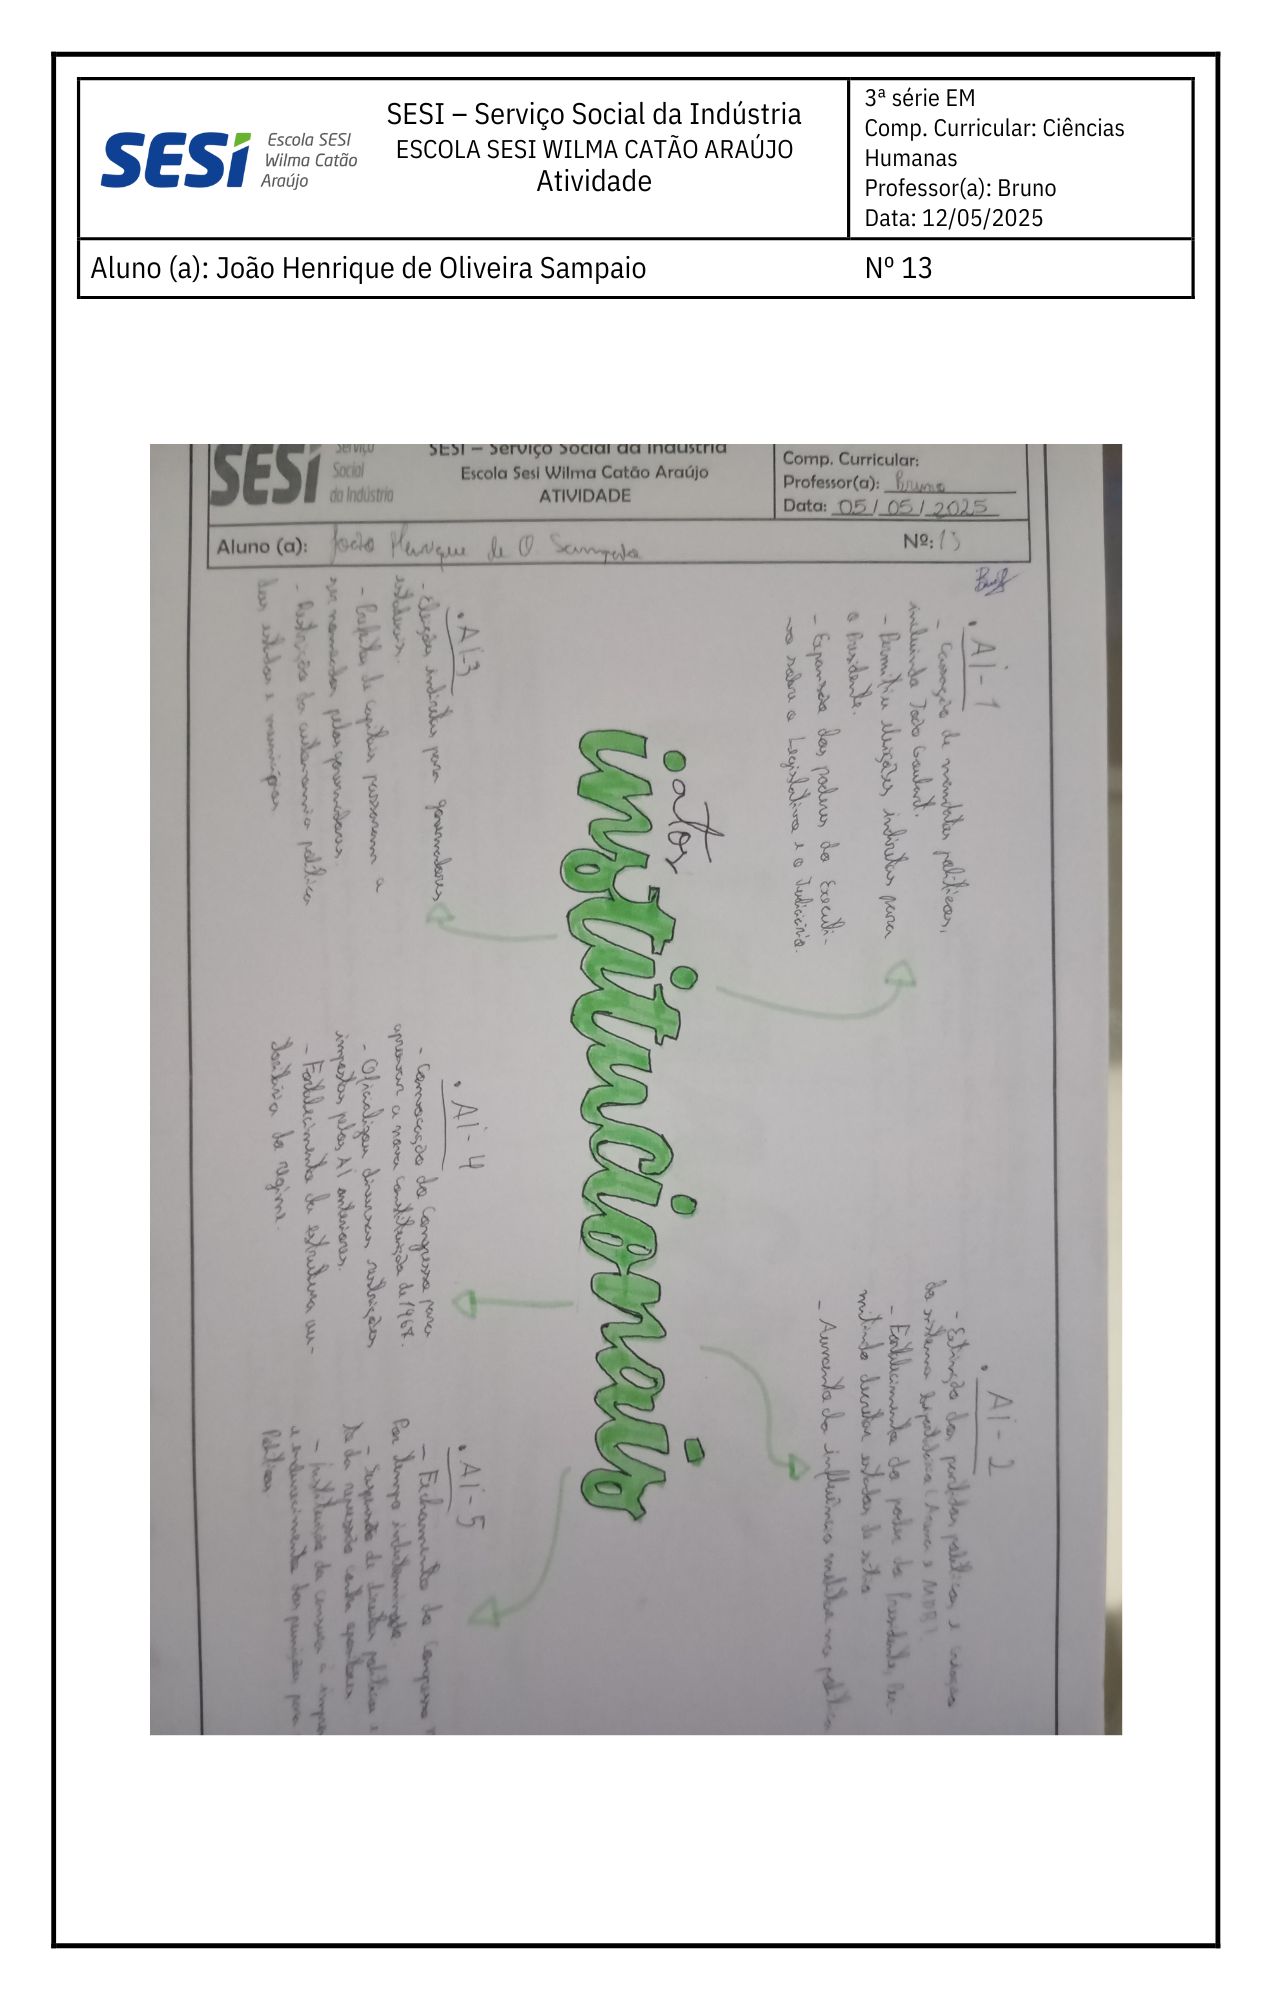 SESI
Escola SESI
Wilma Catão
Araújo
SESI – Serviço Social da Indústria
ESCOLA SESI WILMA CATÃO ARAÚJO
Atividade
3ª série EM
Comp. Curricular: Ciências
Humanas
Professor(a): Bruno
Data: 12/05/2025
Aluno (a): João Henrique de Oliveira Sampaio
Nº 13
SESI
Serviço
Social
da Indústria
SESI – Serviço Social da Indústria
Escola Sesi Wilma Catão Araújo
ATIVIDADE
Comp. Curricular:
Professor(a): Bruno
Data: 05/05/2025
Aluno (a): João Henrique de O. Sampaio
Nº: 13
• AI-1
- Cassação de mandatos políticos,
incluindo João Goulart.
- Permitiu eleições indiretas para
o Presidente.
- Expansão dos poderes do Executi-
vo sobre o Legislativo e o Judiciário.
• AI-2
- Extinção dos partidos políticos e criação
do sistema bipartidário (Arena e MDB).
- Fortalecimento do poder do Presidente, per-
mitindo decretar estados de sítio
- Aumento da influência militar na política
• atos
institucionais
• AI-3
- Eleições indiretas para governadores
estaduais.
- Prefeitos de capitais passaram a
ser nomeados pelos governadores.
- Restrição da autonomia política
dos estados e municípios
• AI-4
- Convocação do Congresso para
aprovar a nova constituição de 1967.
- Oficializou diversas restrições
impostas pelos AI anteriores.
- Fortalecimento da estrutura au-
toritária do regime.
• AI-5
- Fechamento do Congresso
Por tempo indeterminado
- Suspensão de direitos políticos e
da repressão contra opositores
- Instituição da censura à
e endurecimento das punições para
Políticos